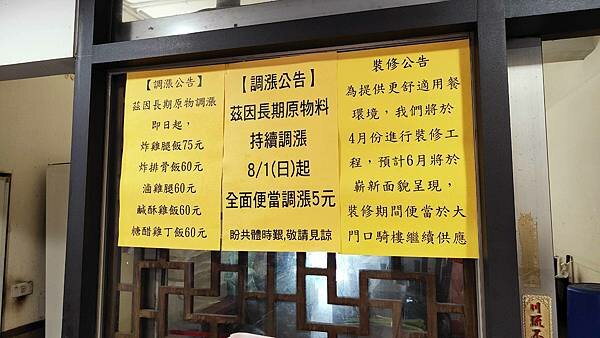 【調漲公告】
茲因長期原物調漲
即日起，
炸雞腿飯75元
炸排骨飯60元
滷雞腿60元
鹹酥雞飯60元
糖醋雞丁飯60元
【調漲公告】
茲因長期原物料
持續調漲
8/1(日)起
全面便當調漲5元
盼共體時艱,敬請見諒
裝修公告
為提供更舒適用餐
環境，我們將於
4月份進行裝修工
程，預計6月將於
嶄新面貌呈現，
裝修期間便當於大
門口騎樓繼續供應